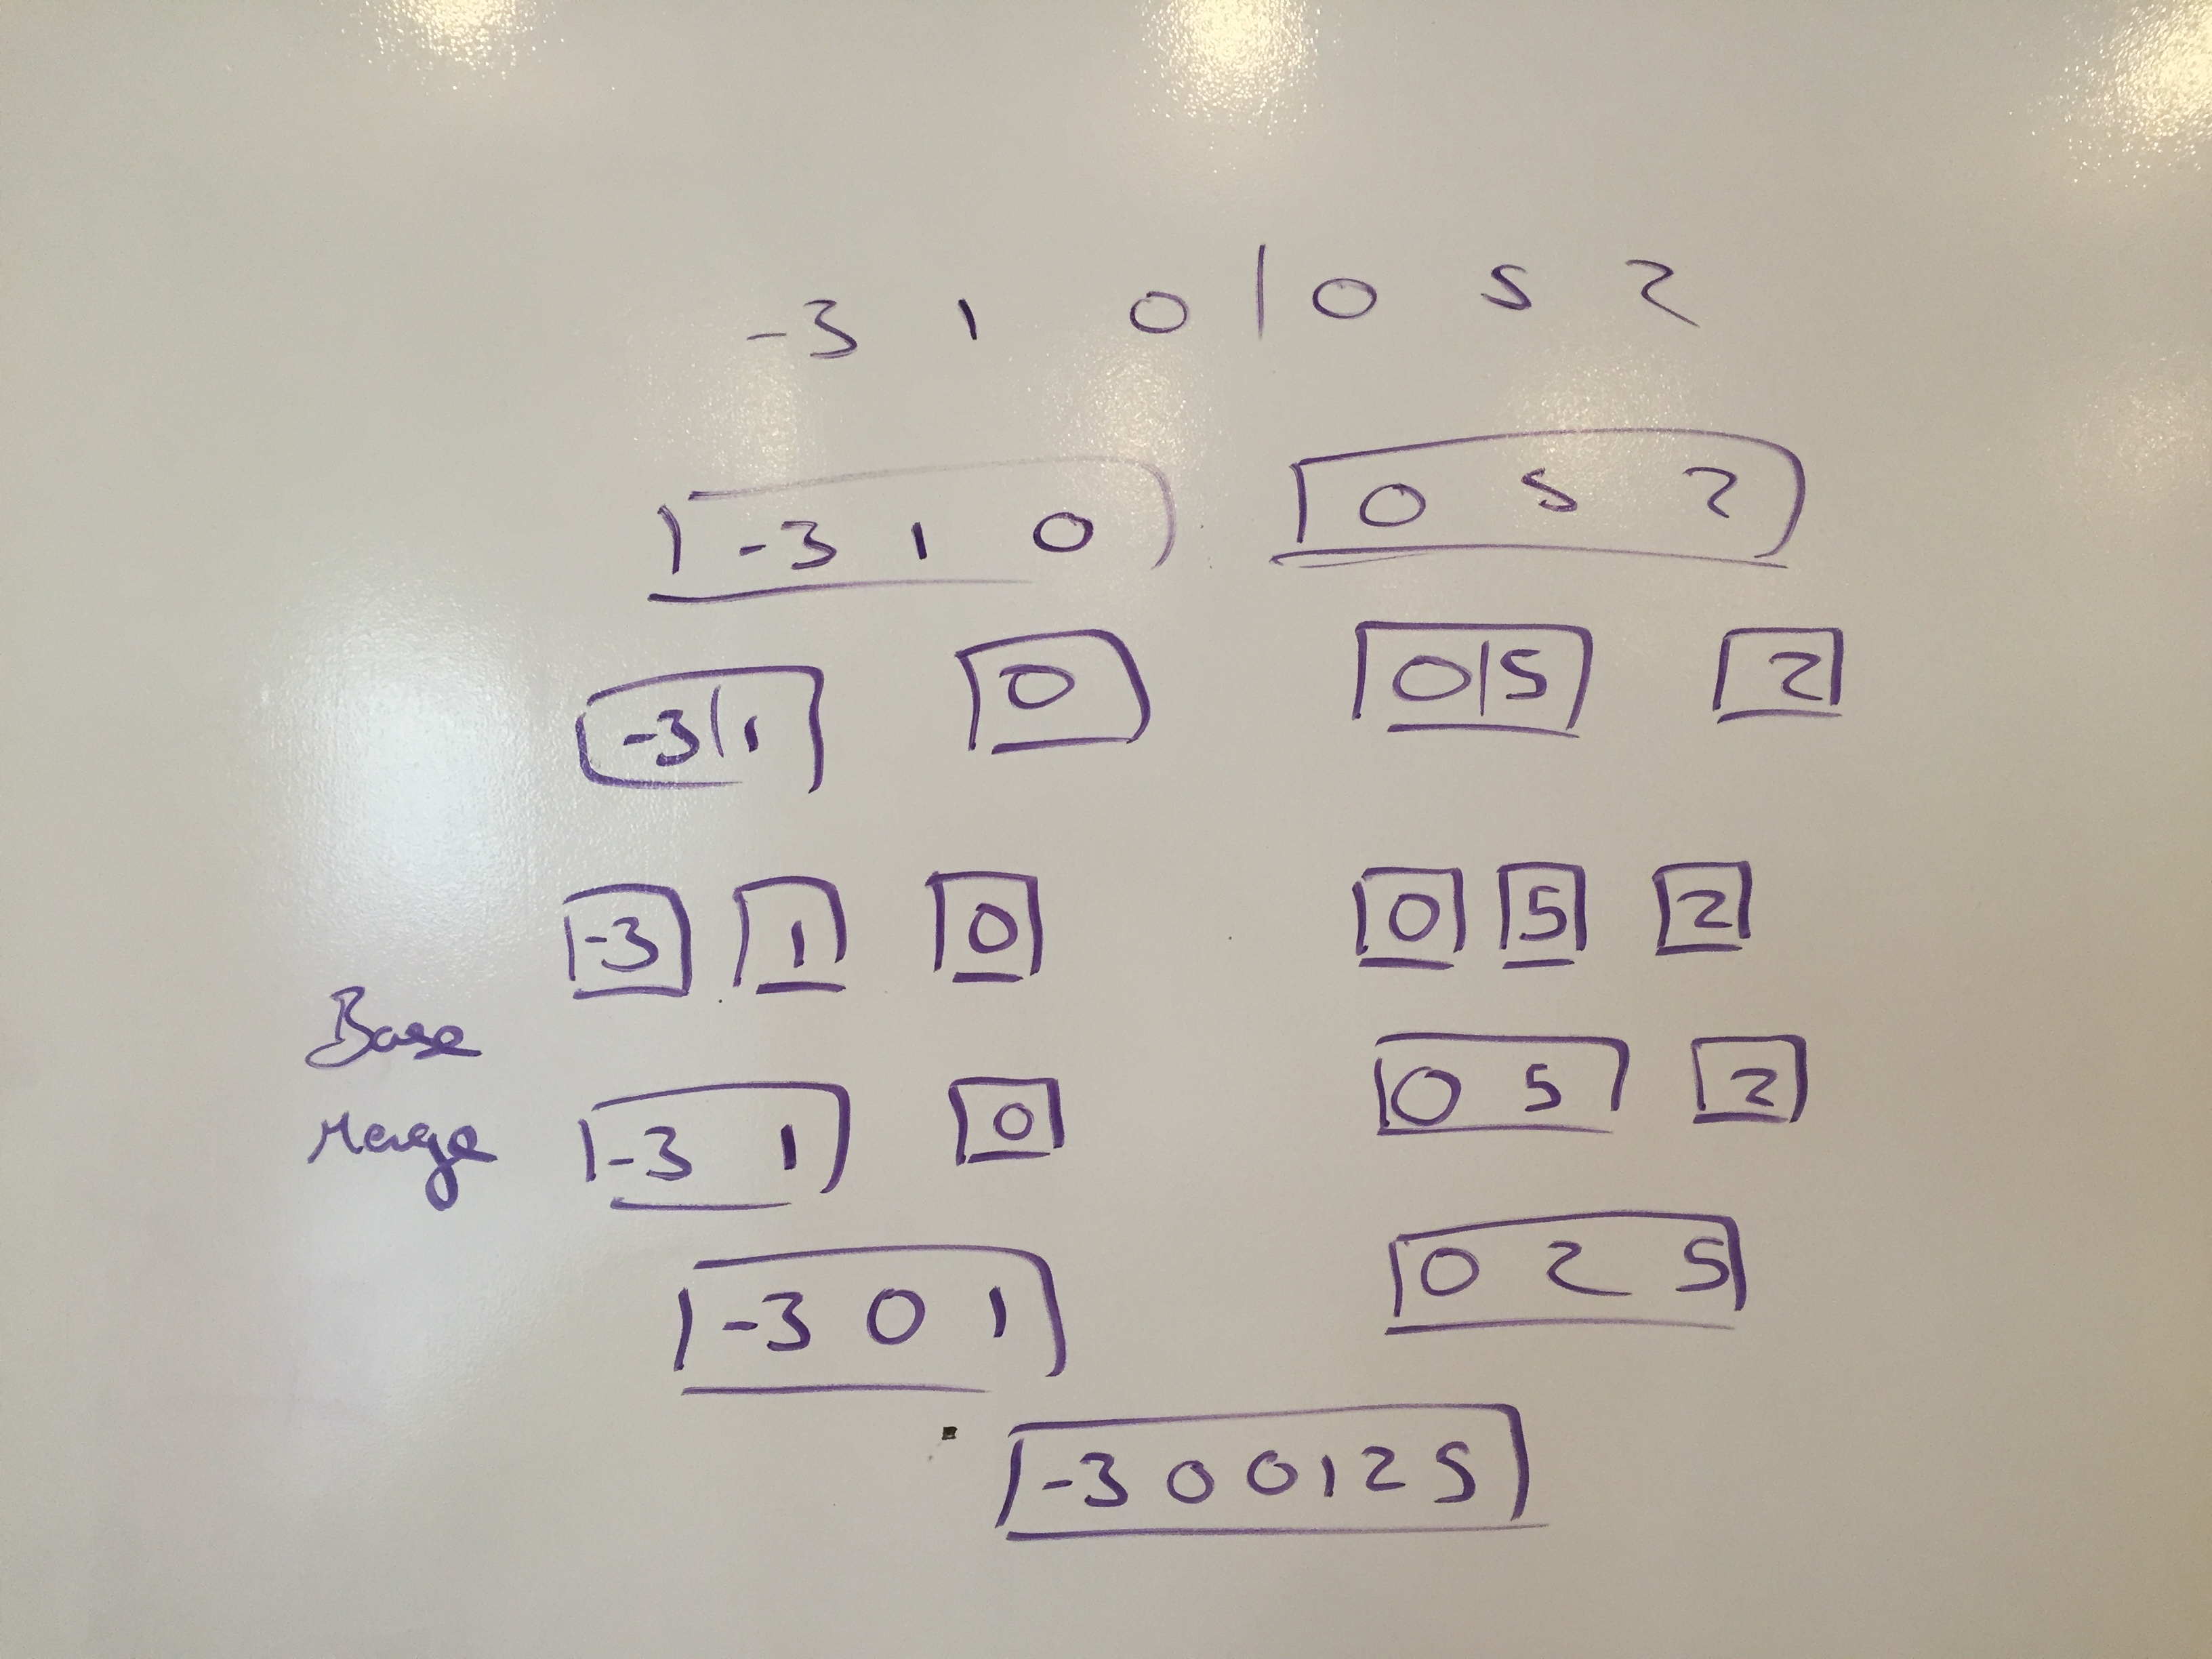 -3 1 0 | 0 5 2
-3 1 0 0 5 2
-3 | 1 0 0 | 5 2
-3 1 0 0 5 2
Base
Merge -3 1 0 0 5 2
-3 0 1 0 2 5
-3 0 0 1 2 5